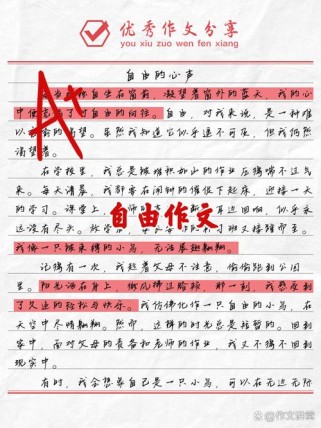 优秀作文分享
you xiu zuo wen fen xiang
自由的心声
A+
独自坐在窗前，凝望着窗外的蓝天，我的心
中便充满了对自由的向往。自由，对我来说，是一种难
以的渴望。虽然我知道它似乎遥不可及，但我仍然
渴望着。
在学校里，我总是被堆积如山的作业压得喘不过气
来。每天清晨，我都要在闹钟的催促下起床，迎接一天
的学习。课堂上，老师的耳边回响，似乎永
远没有尽头。放学习班又接踵而至。
我像一只被束缚的小鸟，无法展翅翱翔。
记得有一次，我趁着父母不注意，偷偷跑到公园
里。阳光洒在身上，微风拂过脸颊，那一刻，我感受到
了久违的轻松与快乐。我仿佛化作一只自由的小鸟，在
天空中尽情翱翔。然而，这样的时光总是短暂的。回到
家中，面对父母的责备和老师的作业，我又不得不回到
现实中。
有时，我会想象自己是一只小鸟，可以在无边无际
自由作文
作文讲堂